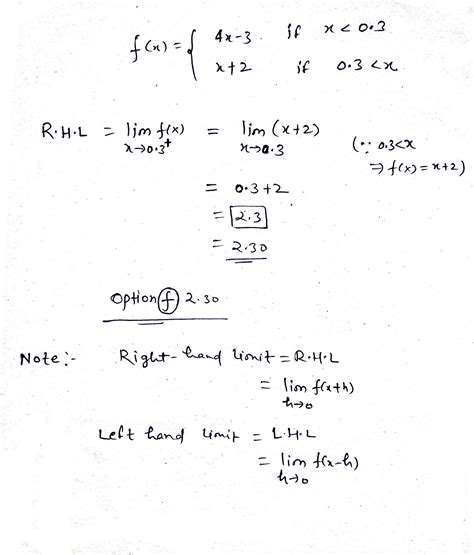 f(x) = { 4x-3 if x < 0.3
x+2 if 0.3 < x
R.H.L = lim f(x) = lim (x+2)
x→0.3⁺ x→0.3 (∵ 0.3<x
⇒ f(x) = x+2)
= 0.3+2
= 2.3
= 2.30
Option (f) 2.30
Note:- Right-hand limit = R.H.L
= lim f(x+h)
h→0
Left hand limit = L.H.L
= lim f(x-h)
h→0